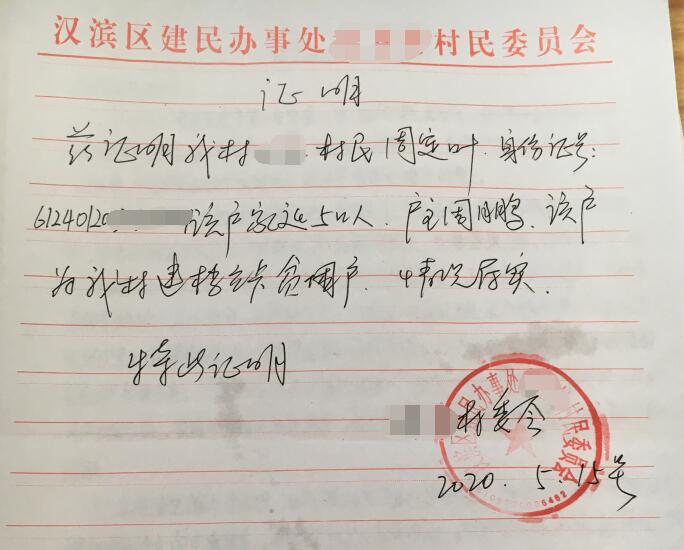 汉滨区建民办事处 村民委员会
证明
兹证明我村 村民周定叶.身份证号:
61240120 该户家庭5口人.户主周鹏.该户
为我村建档立卡贫困户.情况属实.
特此证明
村委会
2020.5.15号